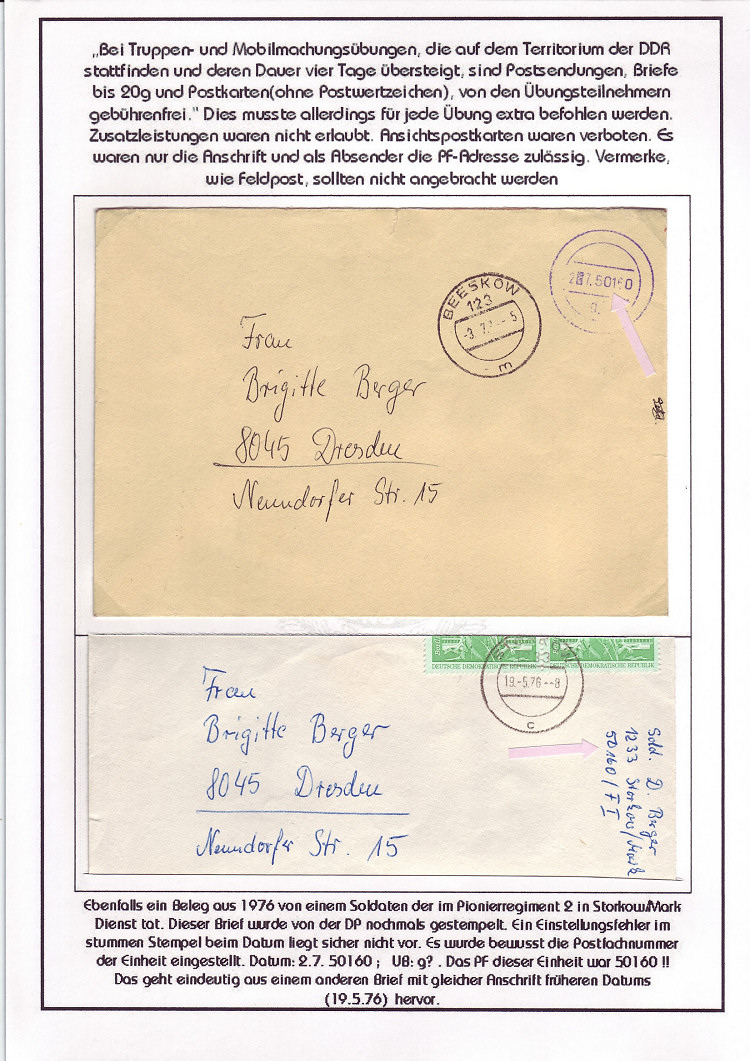 „Bei Truppen- und Mobilmachungsübungen, die auf dem Territorium der DDR
stattfinden und deren Dauer vier Tage übersteigt, sind Postsendungen, Briefe
bis 20g und Postkarten(ohne Postwertzeichen), von den Übungsteilnehmern
gebührenfrei." Dies musste allerdings für jede Übung extra befohlen werden.
Zusatzleistungen waren nicht erlaubt. Ansichtspostkarten waren verboten. Es
waren nur die Anschrift und als Absender die PF-Adresse zulässig. Vermerke,
wie Feldpost, sollten nicht angebracht werden
BEESKOW
123
m
7.50160
g.
Frau
Brigitte Berger
8045 Dresden
Neundorfer Str. 15
DEUTSCHE DEMOKRATISCHE REPUBLIK
DEUTSCHE DEMOKRATISCHE REPUBLIK
19.-5.76--8
c
Frau
Brigitte Berger
8045 Dresden
Neundorfer Str. 15
Sold. D. Berger
1233 Storkow/Mark
50160/F I
Ebenfalls ein Beleg aus 1976 von einem Soldaten der im Pionierregiment 2 in Storkow/Mark
Dienst tat. Dieser Brief wurde von der DP nochmals gestempelt. Ein Einstellungsfehler im
stummen Stempel beim Datum liegt sicher nicht vor. Es wurde bewusst die Postfachnummer
der Einheit eingestellt. Datum: 2.7. 50160 ; UB: g? . Das PF dieser Einheit war 50160 !!
Das geht eindeutig aus einem anderen Brief mit gleicher Anschrift früheren Datums
(19.5.76) hervor.